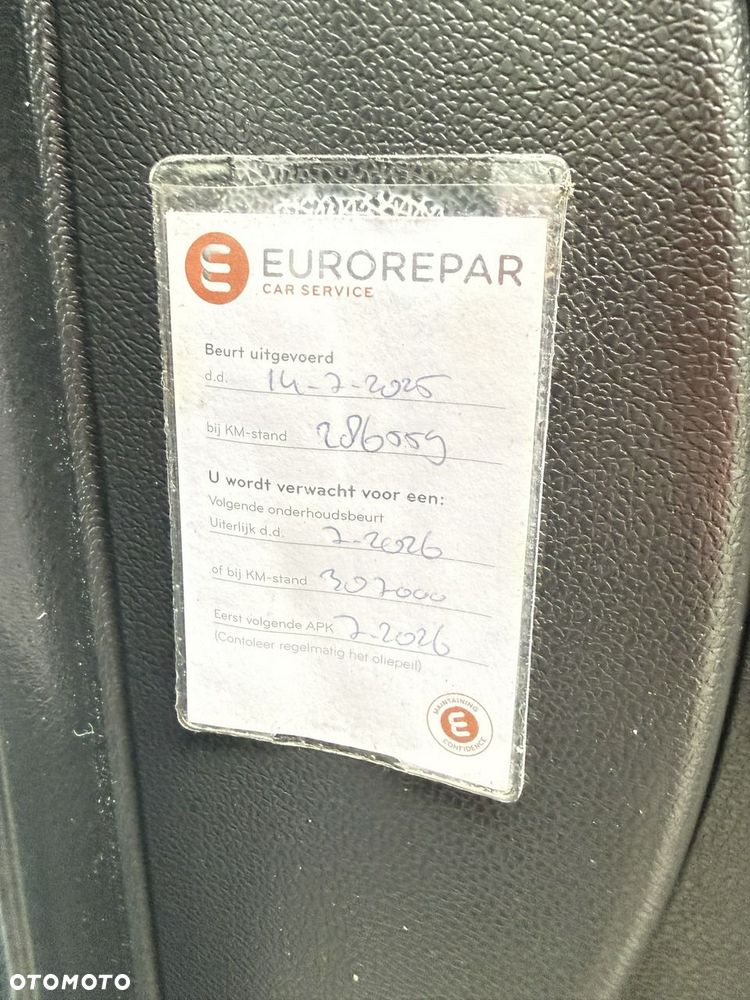 EUROREPAR
CAR SERVICE
Beurt uitgevoerd
d.d. 14-7-2025
bij KM-stand 286559
U wordt verwacht voor een:
Volgende onderhoudsbeurt
Uiterlijk d.d. 7-2026
of bij KM-stand 307000
Eerst volgende APK 7-2026
(Contoleer regelmatig het oliepeil)
MAINTAINING
CONFIDENCE
OTOMOTO